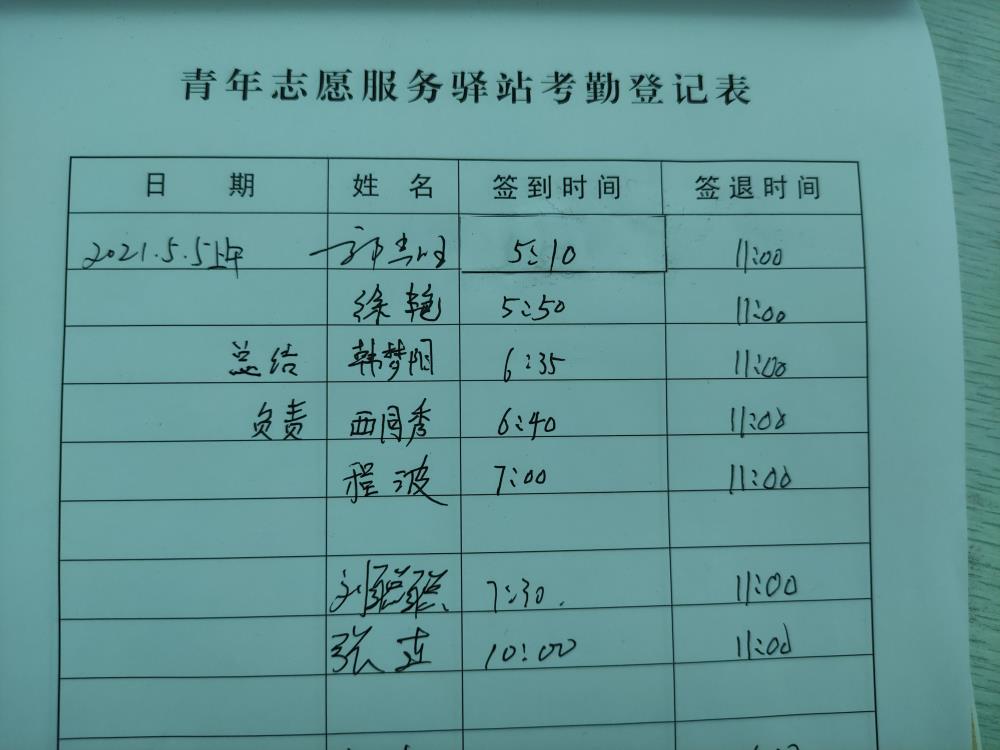 青年志愿服务驿站考勤登记表
日 期 姓 名 签到时间 签退时间
2021.5.5上午 5:10 11:00
徐艳 5:50 11:00
总结 韩梦阳 6:35 11:00
负责 西国秀 6:40 11:00
程波 7:00 11:00
刘聪聪 7:30. 11:00
张连 10:00 11:00